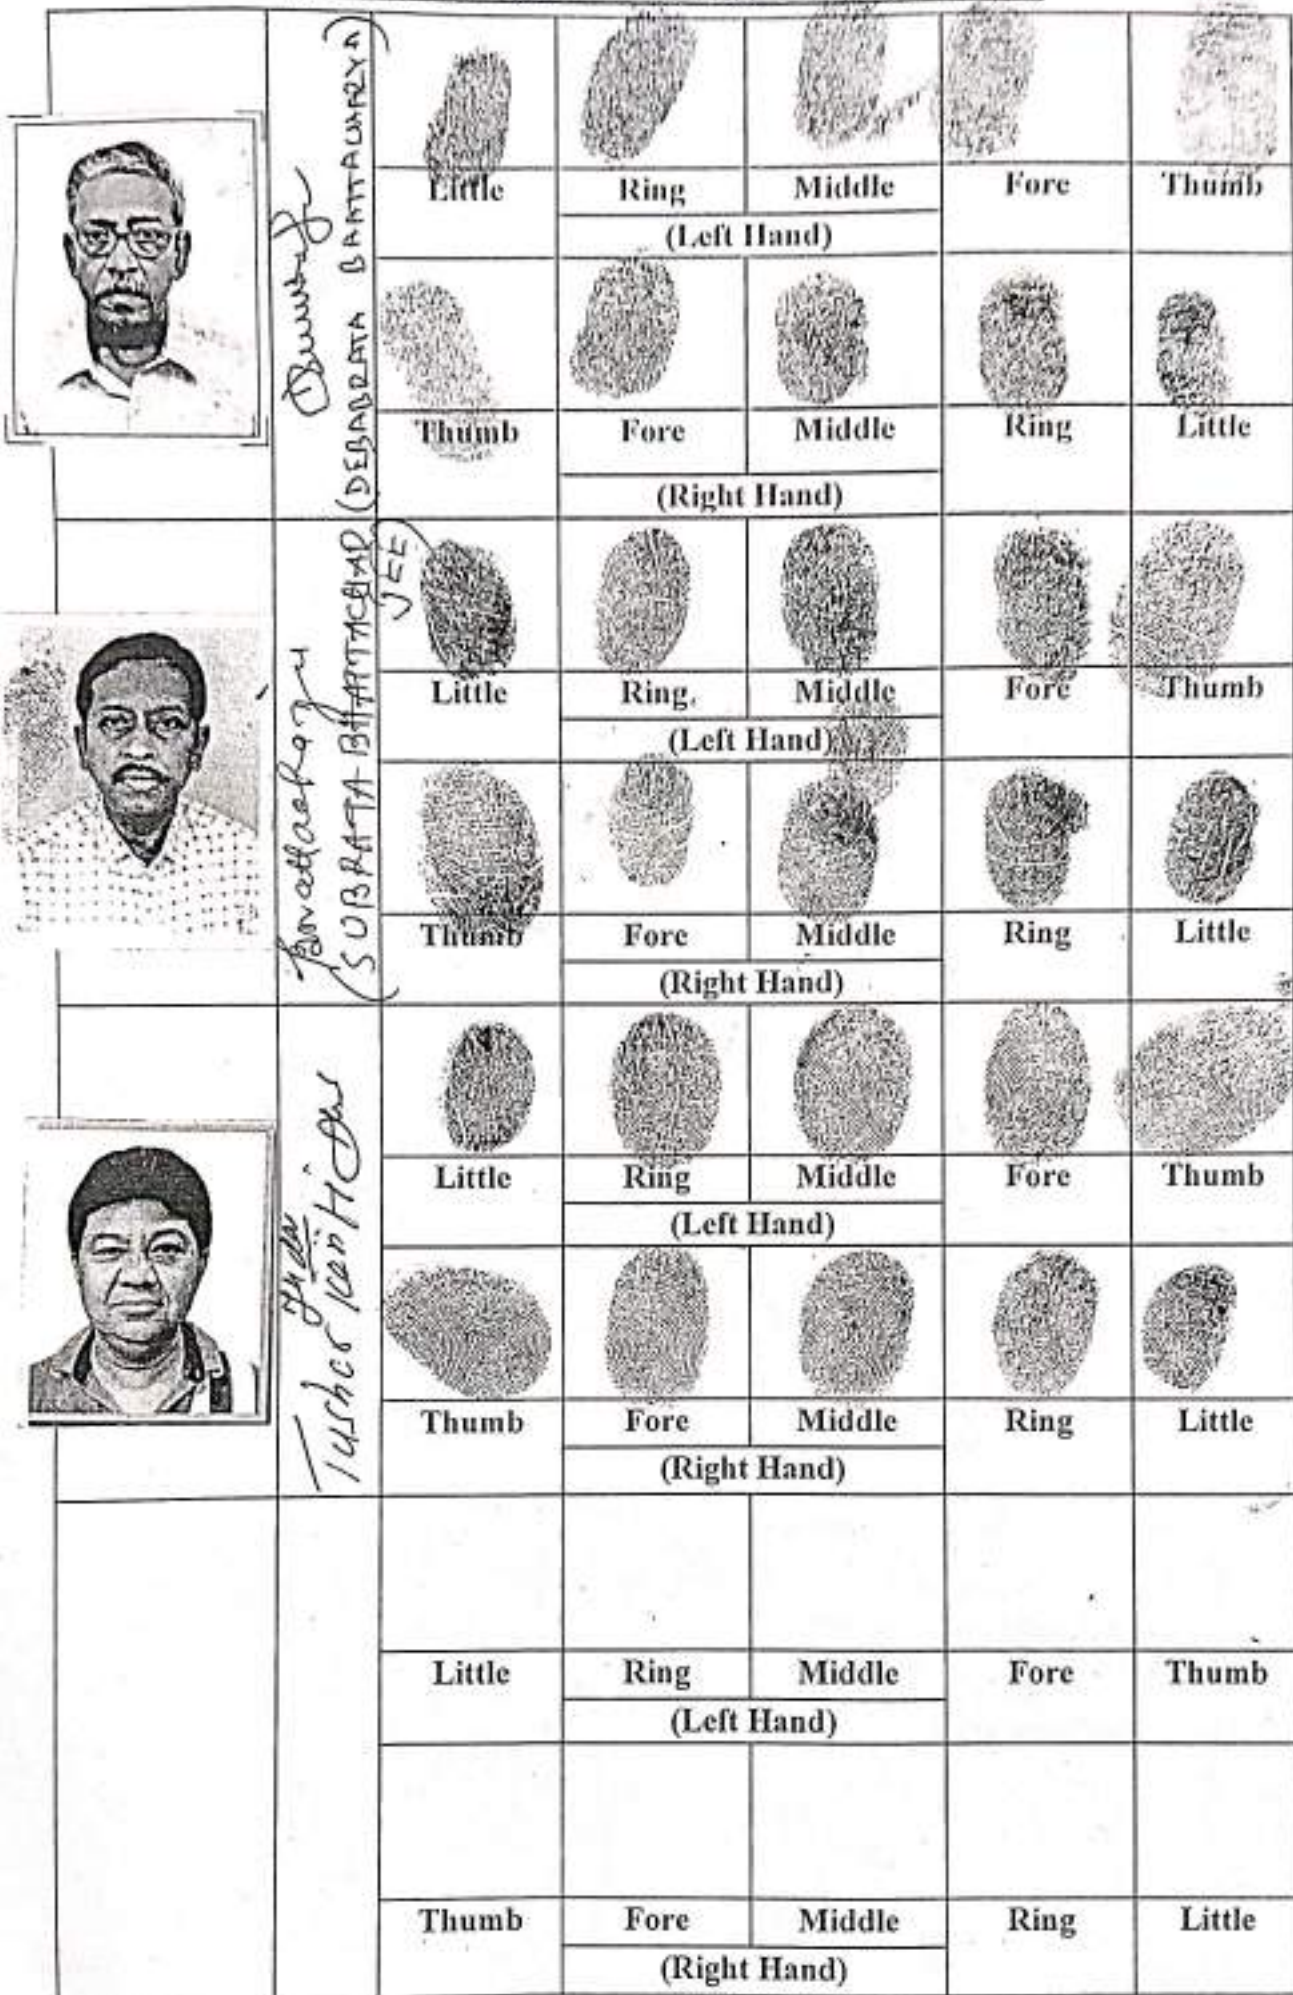 (DEBABRATA BAHTTACHARYA)
Little Ring Middle Fore Thumb
(Left Hand)
Thumb Fore Middle Ring Little
(Right Hand)
(SUBRATA BHATTACHARJEE)
Little Ring Middle Fore Thumb
(Left Hand)
Thumb Fore Middle Ring Little
(Right Hand)
Tushar Kanti
Little Ring Middle Fore Thumb
(Left Hand)
Thumb Fore Middle Ring Little
(Right Hand)
Little Ring Middle Fore Thumb
(Left Hand)
Thumb Fore Middle Ring Little
(Right Hand)